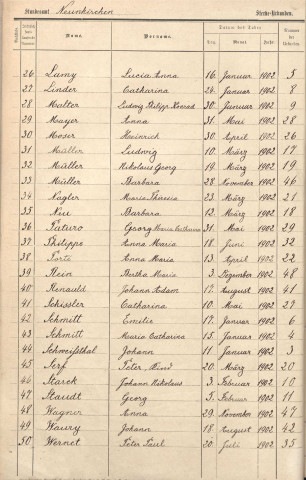 Standesamt Neunkirchen Sterbe-Urkunden.
Name. Vorname.
Tag. Monat. Jahr.
26 Lamy Lucia Anna 16. Januar 1902 5
27 Linder Catharina 24. Januar 1902 8
28 Malter Ludwig Philipp Konrad 30. Januar 1902 9
29 Mayer Anna 31. Mai 1902 28
30 Moser Heinrich 30. April 1902 26
31 Müller Ludwig 10. März 1902 17
32 Müller Nikolaus Georg 19. März 1902 19
33 Müller Barbara 28. November 1902 46
34 Nagler Maria Theresia 23. März 1902 21
35 Neu Barbara 12. März 1902 18
36 Georg 31. Mai 1902 29
37 Philippi Anna Maria 18. Juni 1902 32
38 Anna Maria 13. April 1902 22
39 Bertha Maria 3. Dezember 1902 48
40 Renauld Johann Adam 17. August 1902 41
41 Schissler Catharina 10. Mai 1902 27
42 Schmitt Emilie 17. Januar 1902 6
43 Schmitt Maria Catharina 15. Januar 1902 4
44 Schweissthal Johann 11. Januar 1902 3
45 Serf Peter 20. März 1902 20
46 Starck Johann Nikolaus 3. Februar 1902 10
47 Staudt Georg 5. Februar 1902 11
48 Wagner Anna 29. November 1902 47
49 Waury Johann 18. August 1902 42
50 Wernet Peter Paul 20. Juli 1902 35